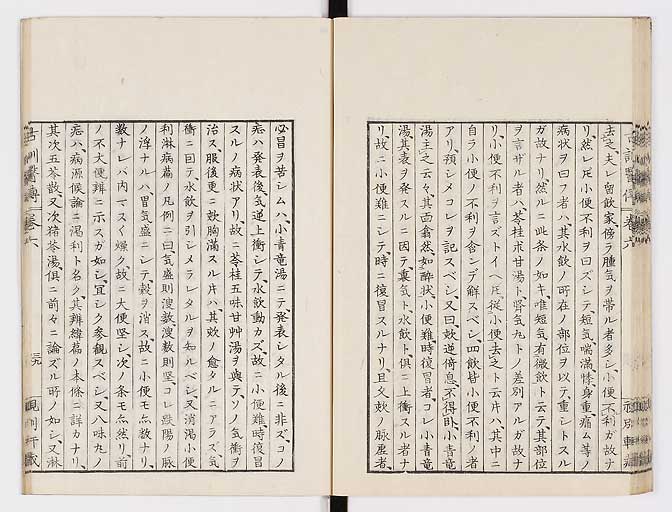 去之、夫レ留飲家、傍ラ腫気ヲ帯ル者多シ、小便不利ガ故ナ
リ、然レ𪜈小便不利ヲ曰ズシテ、短気、喘満、悸、身重、痛ム等ノ
病状ヲ曰フ者ハ、其水飲ノ所在ノ部位ヲ以テ、重シトスル
ガ故ナリ、然ルニ此条ノ如キ、唯短気有微飲ト云テ其部位
ヲ言ザル者ハ、苓桂朮甘湯ト、腎気丸トノ差別アルガ故ナ
リ、小便不利ヲ言ズトイヘ𪜈、従小便去之ト云片ハ、其中ニ
自ラ小便ノ不利ヲ含ンデ解スベシ、四飲皆小便不利ノ者
アリ、預シメコレヲ記スベシ、又曰、欬逆倚息、不得臥、小青竜
湯主之云々、其面翕然如酔状、小便難時復冒者、コレ小青竜
湯、其表ヲ発スルニ因テ、裏気ト、水飲ト、俱ニ上衝スル者ナ
リ、故ニ小便難ニシテ、時ニ復冒スルナリ、且又欬ノ脈虚者、
必冒ヲ苦シムハ、小青竜湯ニテ、発表シタル後ニ非ズ、コノ
症ハ、発表後、気逆上衝シテ、水飲動カズ、故ニ小便難時復冒
スルノ病状アリ、故ニ苓桂五味甘艸湯ヲ与テ、ソノ気衝ヲ
治ス、服後更ニ欬胸満スル片ハ、其欬ノ愈タルニアラズ、気
衝ニ因テ水飲ヲ引シメラレタルヲ知ルベシ、又消渇小便
利淋病篇ノ凡例ニ曰、気盛則溲数、溲数則堅、コレ趺陽ノ脈
ノ浮ナルハ、胃気盛ニシテ、穀ヲ消ス、故ニ小便モ亦数ナリ、
数ナレバ内マスく燥ク、故ニ大便堅シ、次ノ条モ亦然リ、前
ノ不大便辨ニ示スガ如シ、宜シク参観スベシ、又八味丸ノ
症ハ、病源候論ニ渇利ト名ク、其辨緯篇ノ本條ニ詳カナリ、
其次五苓散、又次猪苓湯、俱ニ前々ニ論ズル所ノ如シ、又淋